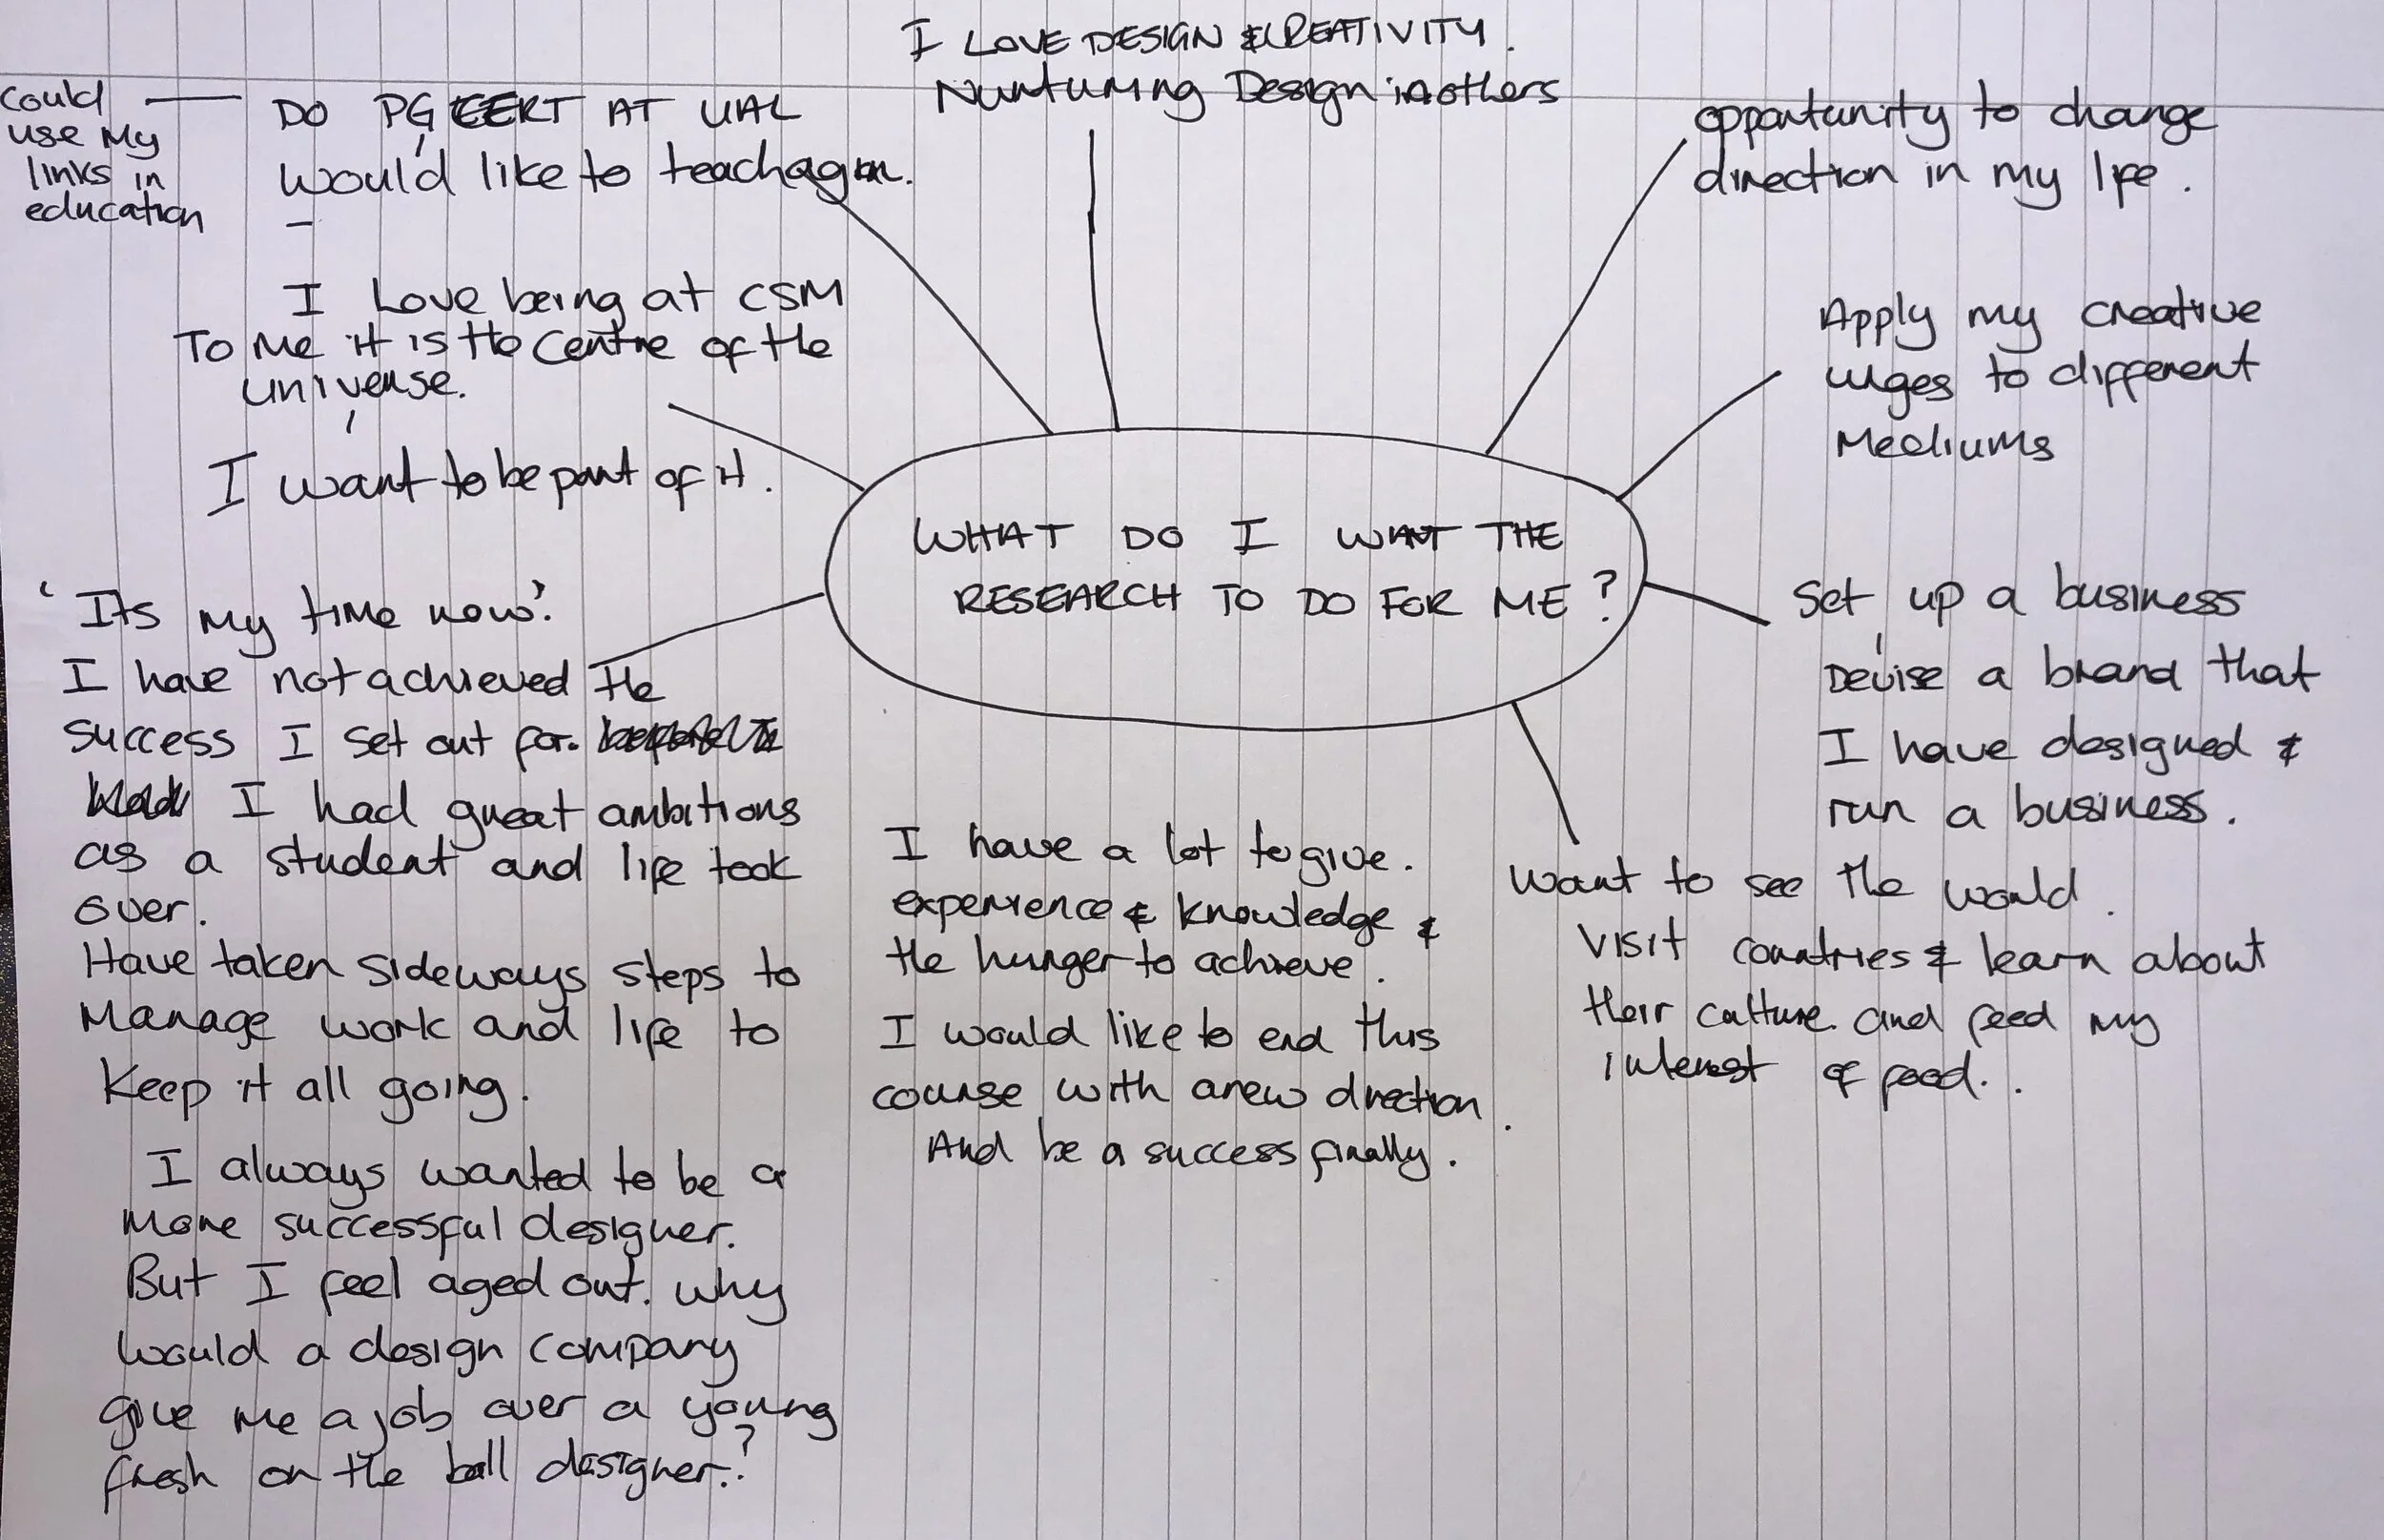 I LOVE DESIGN & CREATIVITY.
Nurturing Design in others
Could
use my
links in
education
DO PGCERT AT UAL
would like to teach again.
I Love being at CSM
To Me it is the Centre of the
universe.
I want to be part of it.
opportunity to change
direction in my life.
Apply my creative
urges to different
Mediums
WHAT DO I WANT THE
RESEARCH TO DO FOR ME?
'Its my time now'.
I have not achieved the
success I set out for.
I had great ambitions
as a student and life took
over.
Have taken sideways steps to
Manage work and life to
Keep it all going.
I always wanted to be a
More successful designer.
But I feel aged out. why
would a design company
give me a job over a young
fresh on the ball designer.?
I have a lot to give.
experience & knowledge &
the hunger to achieve.
I would like to end this
course with a new direction.
And be a success finally.
Set up a business
Devise a brand that
I have designed &
run a business.
Want to see the world.
Visit countries & learn about
their culture. and feed my
interest of food..